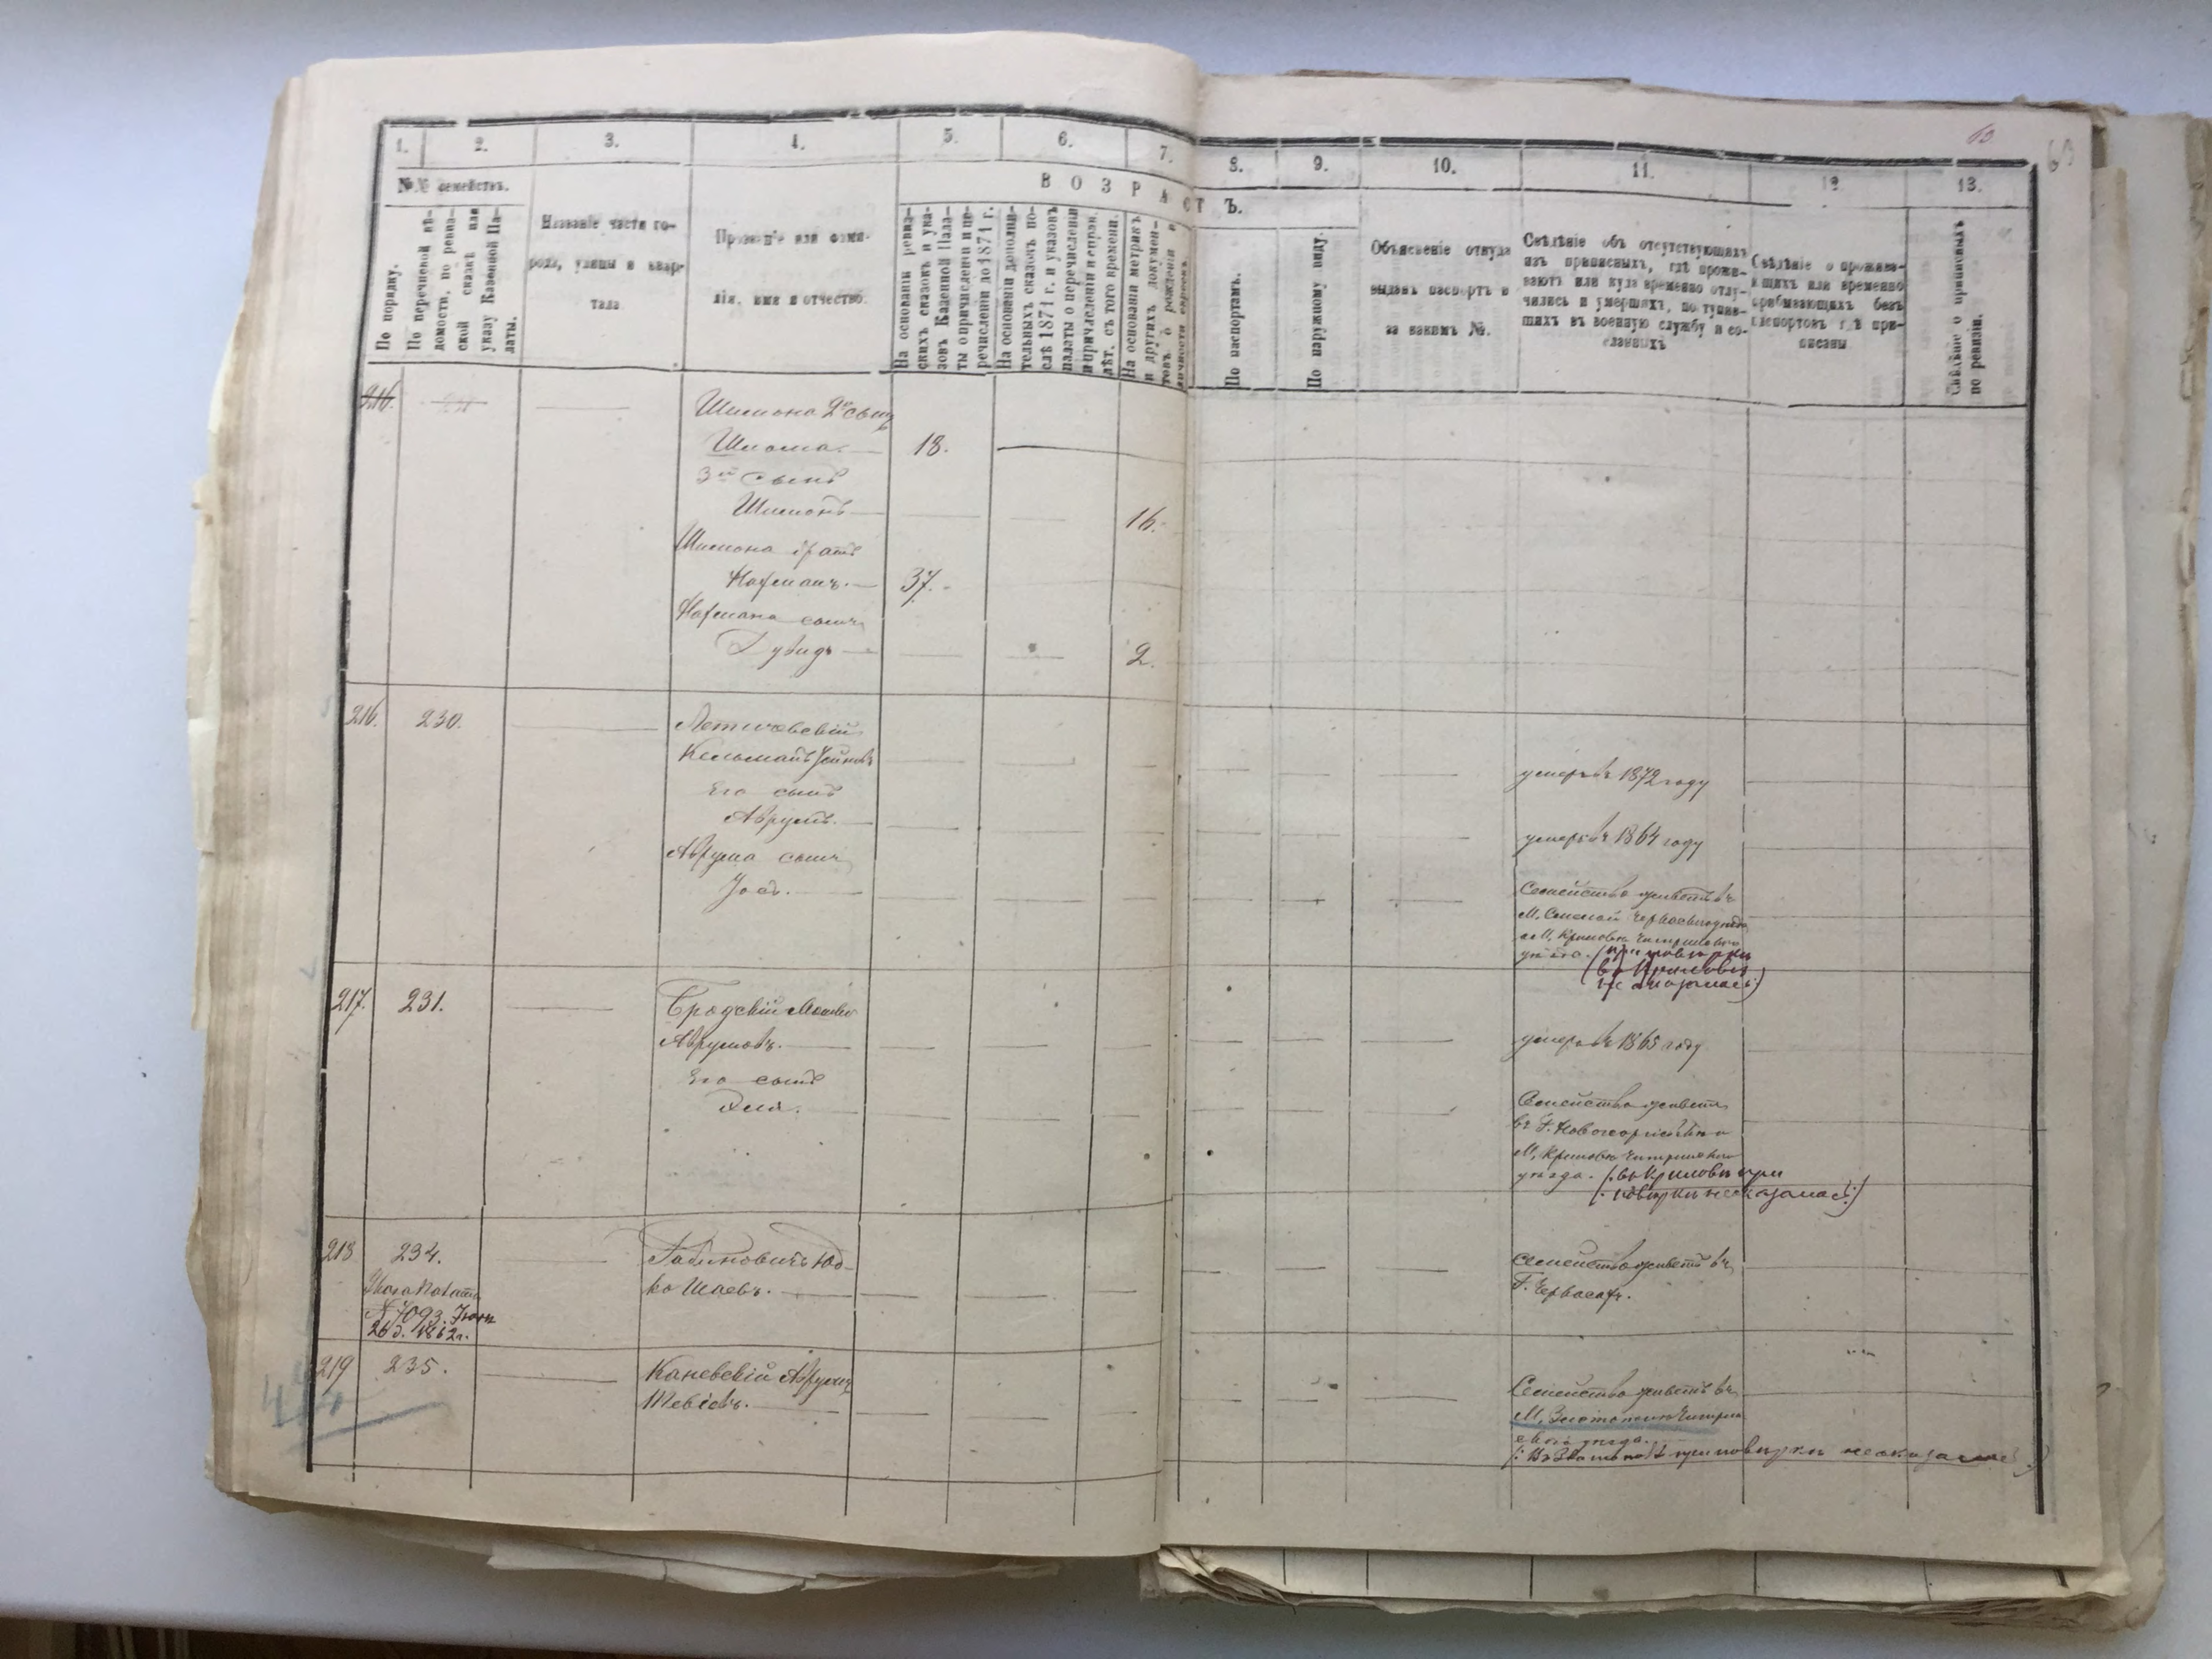 1. 2. 3. 4. 5. 6. 7. 8. 9. 10. 11. 13.
№№ семействъ.
По порядку.
По перечневой вѣ-
домости, по ревиз-
ской сказкѣ или
указу Казенной Па-
латы.
Названіе части го-
рода, улицы и квар-
тала
Прозваніе или фами-
лія, имя и отчество.
ВОЗРАСТЪ.
На основаніи ревиз-
скихъ сказокъ и ука-
зовъ Казенной Пала-
ты о причисленіи и пе-
речисленіи до 1871 г.
На основаніи дополни-
тельныхъ сказокъ по-
слѣ 1871 г. и указовъ
палаты о перечисленіи
и причисленіи и справ.
лѣт. съ того времени.
На основаніи метрикъ
и другихъ докумен-
товъ о рожденіи и
По паспортамъ.
По наружному виду.
Объясненіе откуда
выданъ паспортъ и
за какимъ №.
Свѣдѣніе объ отсутствующихъ
изъ приписныхъ, гдѣ прожи-
ваютъ или куда временно отлу-
чились и умершихъ, поступив-
шихъ въ военную службу и со-
сланныхъ
Свѣдѣніе о прожива-
ющихъ или временно
пребывающихъ безъ
паспортовъ гдѣ при-
писаны
Свѣдѣніе о приписныхъ
по ревизіи.
63
216.
Шимона 2й сынъ
Шлома. 18.
3й сынъ
Шимонъ 16.
Шимона братъ
Нахманъ. 37.
Нахмана сынъ
Дувидъ 2.
216. 230.
Летичевскій
Кельманъ
Его сынъ умеръ въ 1872 году
Аврумъ. умеръ въ 1864 году
Аврума сынъ
Іосъ. Семейство живетъ въ
М. Смелой Черкасскаго уѣзда
и М. Крыловѣ Чигиринскаго
уѣзда. (при повѣрки
въ Крыловѣ
не оказалась)
217. 231.
Бродскій Мошко
Аврумовъ. умеръ въ 1865 году
Его сынъ
Эля. Семейство живетъ
въ Г. Новогеоргіевскѣ и
М. Крыловѣ Чигиринскаго
уѣзда. (: въ Крыловѣ при
повѣрки не оказалась :)
218 234.
Рабиновичъ Юд-
ко Шаевъ. Семейство живетъ въ
Г. Черкасахъ.
Указъ Палаты
№ 7093.
26 д. 1862 г.
219 235.
Каневскій Аврумъ
Тевіевъ. Семейство живетъ въ
М. Златополѣ Чигирин
скаго уѣзда.
(: въ Златополѣ при повѣрки не оказалась :)